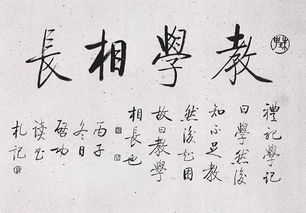 教學相長
禮記學記
曰學然後
知不足教
然後知困
故曰教學
相長也
丙子
冬日
啓功
读书
札記